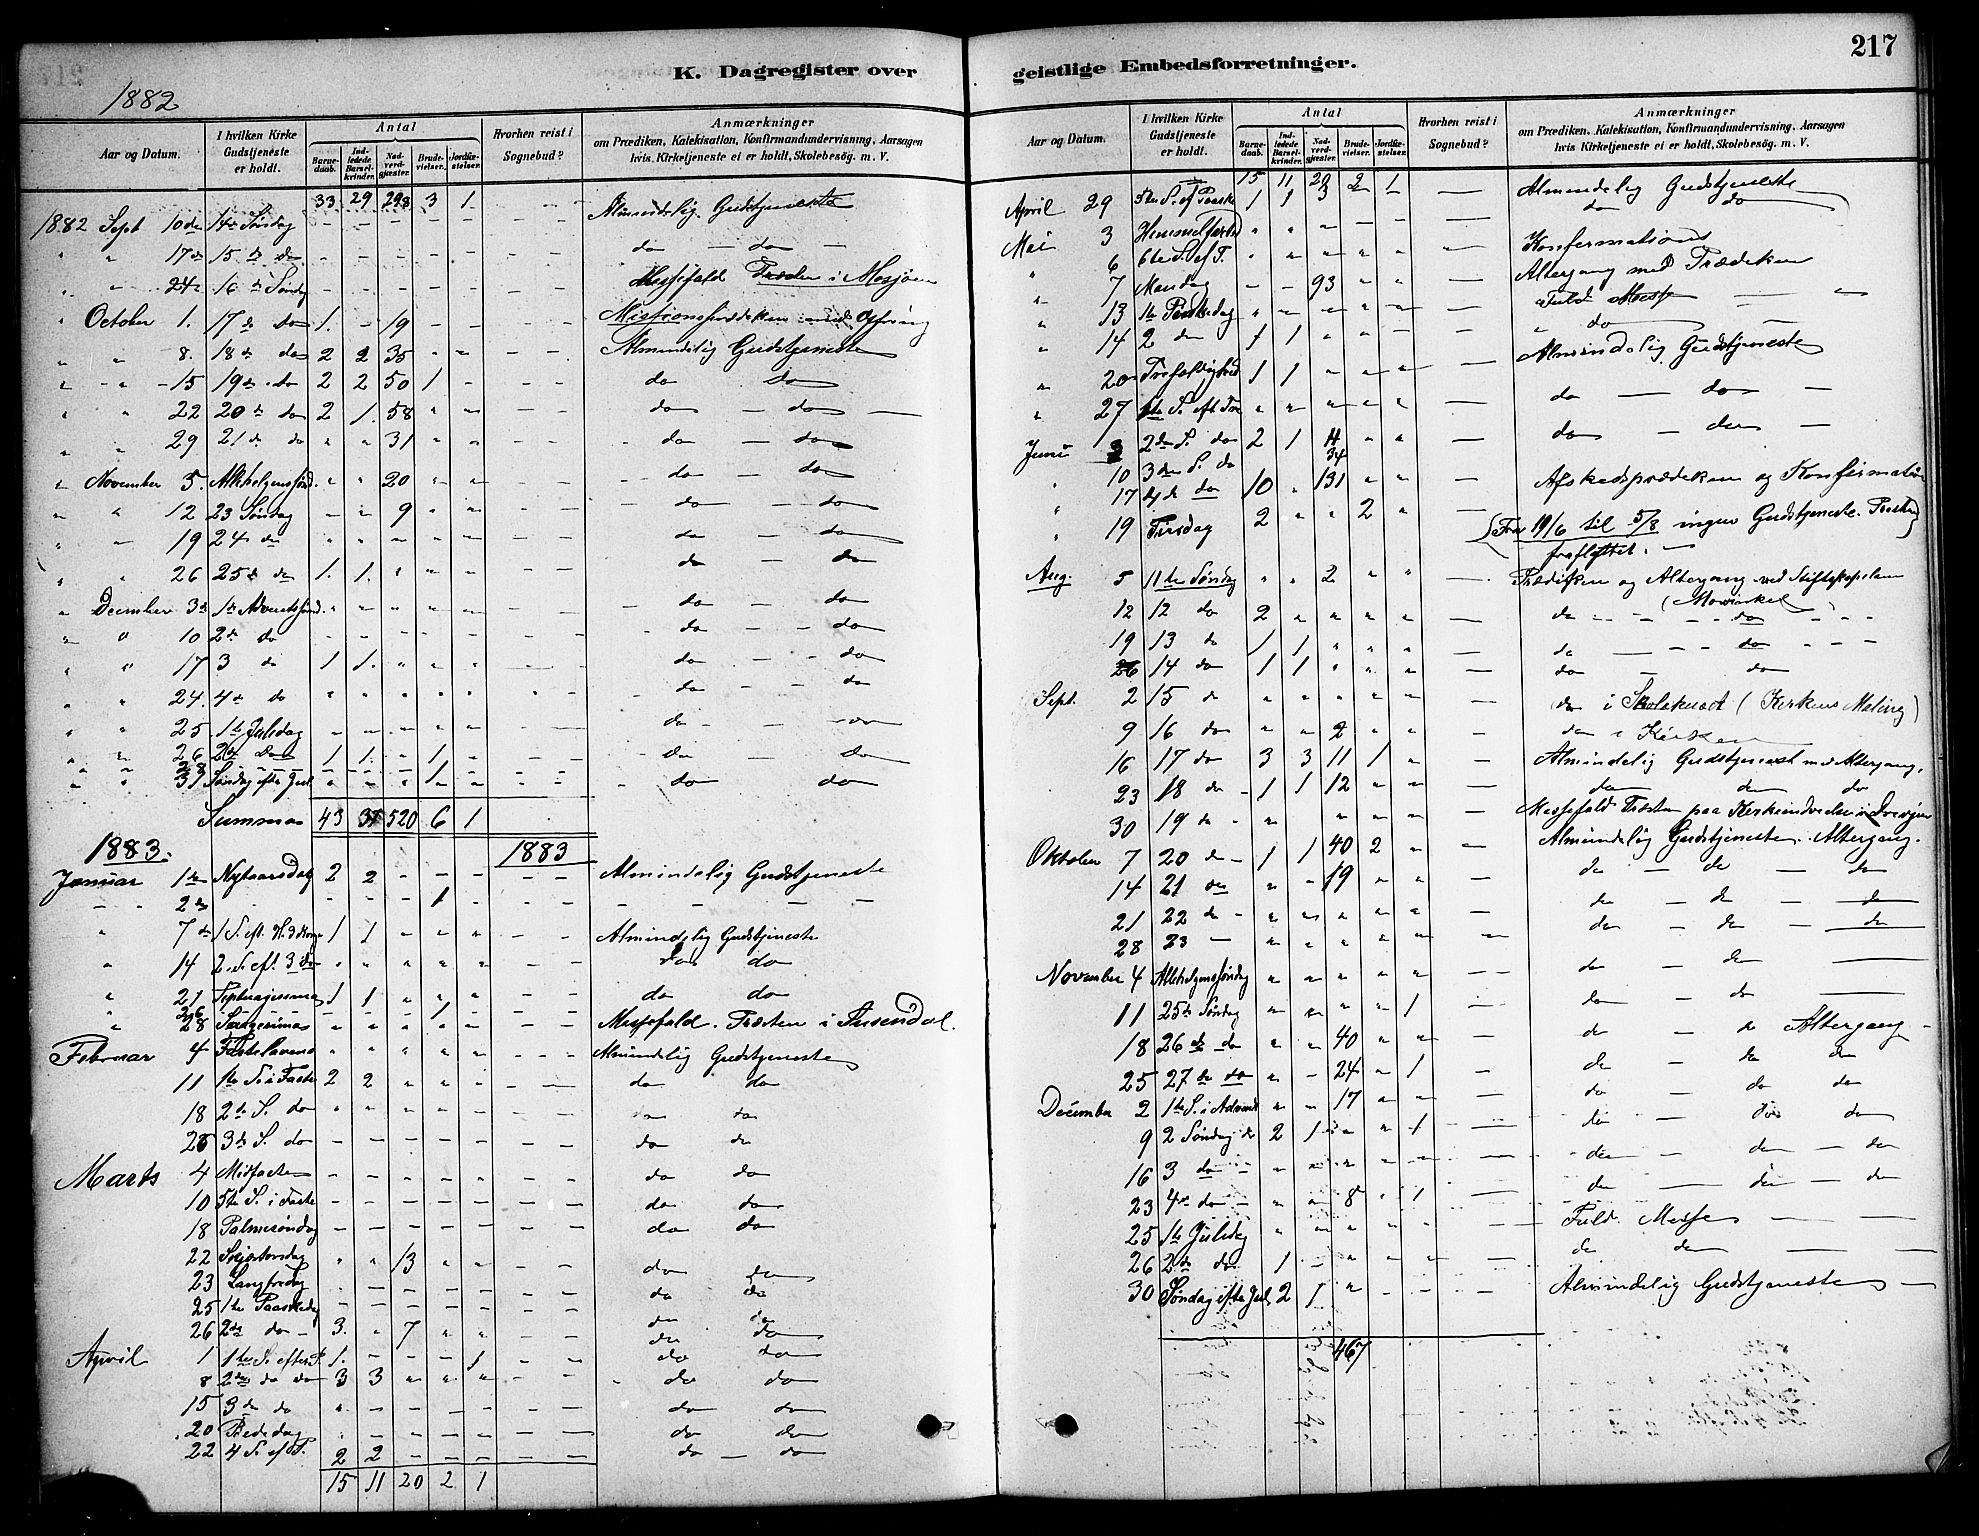 217
K. Dagregister over geistlige Embedsforretninger.
1882
Aar og Datum. I hvilken Kirke Gudstjeneste er holdt. Antal Barnedaab. Indledede Barselkvinder. Nadverdgjæster. Brudevielser. Jordfæstelser. Hvorhen reist i Sognebud? Anmærkninger om Prædiken, Katekisation, Konfirmandundervisning, Aarsagen hvis Kirketjeneste ei er holdt, Skolebesøg. m. V.
33 29 298 3 1
1882 Sept 10de 14de Søndag - - - - - Almindelig Gudstjeneste
" " 17de 15de do - - - - - do - do -
" " 24de 16de Søndag - - - - - Messefald Præsten i Mosjøen
" October 1. 17de do 1. - 19 - - Missionsprædiken med Offring
" " 8. 18de do 2 2 35 " " Almindelig Gudstjeneste
" " 15 19de do 2 2 50 1 - do do
" " 22 20de do 2 1. 58 " " do - do
" " 29 21de do " " 31 " " do - do
" November 5. Allehelgenssønd. " " 20 " " do - do
" " 12 23 Søndag - - 9 " " do - do
" " 19 24 do " " " " " do - do
" " 26 25de do 1. 1. " " " do - do
" December 3de 1ste Adventssønd. " " " " " do - do
" " 10 2de do - - - - - do - - do
" " 17 3 do 1 1. " " " do - - do
" " 24. 4de do " " " " " do - - do
" " 25. 1ste Juledag " " " " " do - - do
" " 26 2de do 1 1. " 1 " do - do
" " 28 - - - - - - 1
" " 31 Søndag efter Jul " " " " " do do
Summa 43 35 520 6 1
1883. 1883
Januar 1ste Nytaarsdag 2 2 - - - Almindelig Gudstjeneste
- - 2de - - - 1 - - - -
" 7de 1 S. eft. H. 3 Konge 1 1 " " " Almindelig Gudstjeneste
" 14 2. S. eft 3 do " " " " " do do
" 21 Septuagesima 1 1 " " " do do
26 - - - - 1 -
" 28 Sexagesima " " " " " Messefald. Præsten i Susendal.
Februar 4 Fastelavens " " " " " Almindelig Gudstjeneste
11 1ste S. i Faste 2 2 " " " do do
18 2de S. do " " " " " do do
25 3de S. do - - - - - do do
Marts 4 Midfaste - - - - - do do
10 5te S. i Faste - - - - - do do
18 Palmesøndag - - - - - do do
22 Skjærtorsdag " " 13 " " do do
23 Langfredag - - - - - do do
25 1ste Paaskedag - - - - - do do
26 2de do - 3. " 7 " " do do
April 1 1ste S. efter P. 1. - - - 1 do do
8 2den do do 3 3 " " " do do
15 3de do " - - - - do do
20 Bededag " - - - - do do
22 4 S. ef P. 2 2 - - - do - do
15 11 20 2 1
Aar og Datum. I hvilken Kirke Gudstjeneste er holdt. Antal Barnedaab. Indledede Barselkvinder. Nadverdgjæster. Brudevielser. Jordfæstelser. Hvorhen reist i Sognebud? Anmærkninger om Prædiken, Katekisation, Konfirmandundervisning, Aarsagen hvis Kirketjeneste ei er holdt, Skolebesøg. m. V.
15 11 20 2 1
April 29 5te S. ef Paaske 1 1 3 - - Almindelig Gudstjeneste
Mai 3 Himmelfartsd " " - - - do do
" 6 6te S. ef P. " " " " " Konfirmation
" 7 Mandag - - 93 " " Altergang med Prædiken
" 13 1ste Pinsedag " " " " " Fuld Messe
" 14 2 do 1 1 " " - " do
" 20 Trefoldighed 1 1 " " " Almindelig Gudstjeneste
" 27 1ste S. eft Tre " " " " " do - do -
Juni 3 2de S. do 2 1 4 " " do - do -
" 10 3de S. do 34
17 4de do 10 " 131 " " Afskedsprædiken og Konfirmation
" 19 Tirsdag 2 " " 2 " (Fra 19/6 til 5/8 ingen Gudstjeneste. Præsten
fraflyttet. -
Aug. 5 11te Søndag " " 2 " " Prædiken og Altergang ved Stiftskapelan
(Mowinkel)
12 12 do 2 " " " " do - - - do - - -
19 13 do 1 1 " " " do - - - do - - -
26 14 do 1 1 " " " do - do
Sept. 2 15 do " " " " " do i Skolehuset (Kirkens Maling)
9 16 do " " 2 " " do i Kirken
16 17 do 3 3 11 1 " Almindelig Gudstjenest med Altergang.
23 18 do - 1 1 12 " " do do do
30 19 do - " " " " Messefald Præsten paa Kirkeindvielse i Drevjen
Oktober 7 20 do - 1 1 40 2 " Almindelig Gudstjeneste. Altergang.
14 21 do " - 19 " " do - do - do
21 22 do - " " " " " do - do - do
28 23 - " " " " " do - do - do
November 4 Allehelgenssøndag " " " " " do - do
11 25de Søndag " " " " 1 do - do
18 26de do " " 40 " " do - do Altergang -
25 27de do " - 24 " 1 do - do do
December 2 1ste S. i Advent " " 17 " " do - do do
9 2 Søndag do 2 1 " " 1 do - do do
16 3 do - " " " " do - do - do
23 4de do - " " 8 " 1 do - do - do
25 1ste Juledag " " " " " Fuld Messe - -
26 2de do 1 - " " " do do -
30 Søndag efter Jul 2 1 " - - Almindelig Gudstjeneste -
467